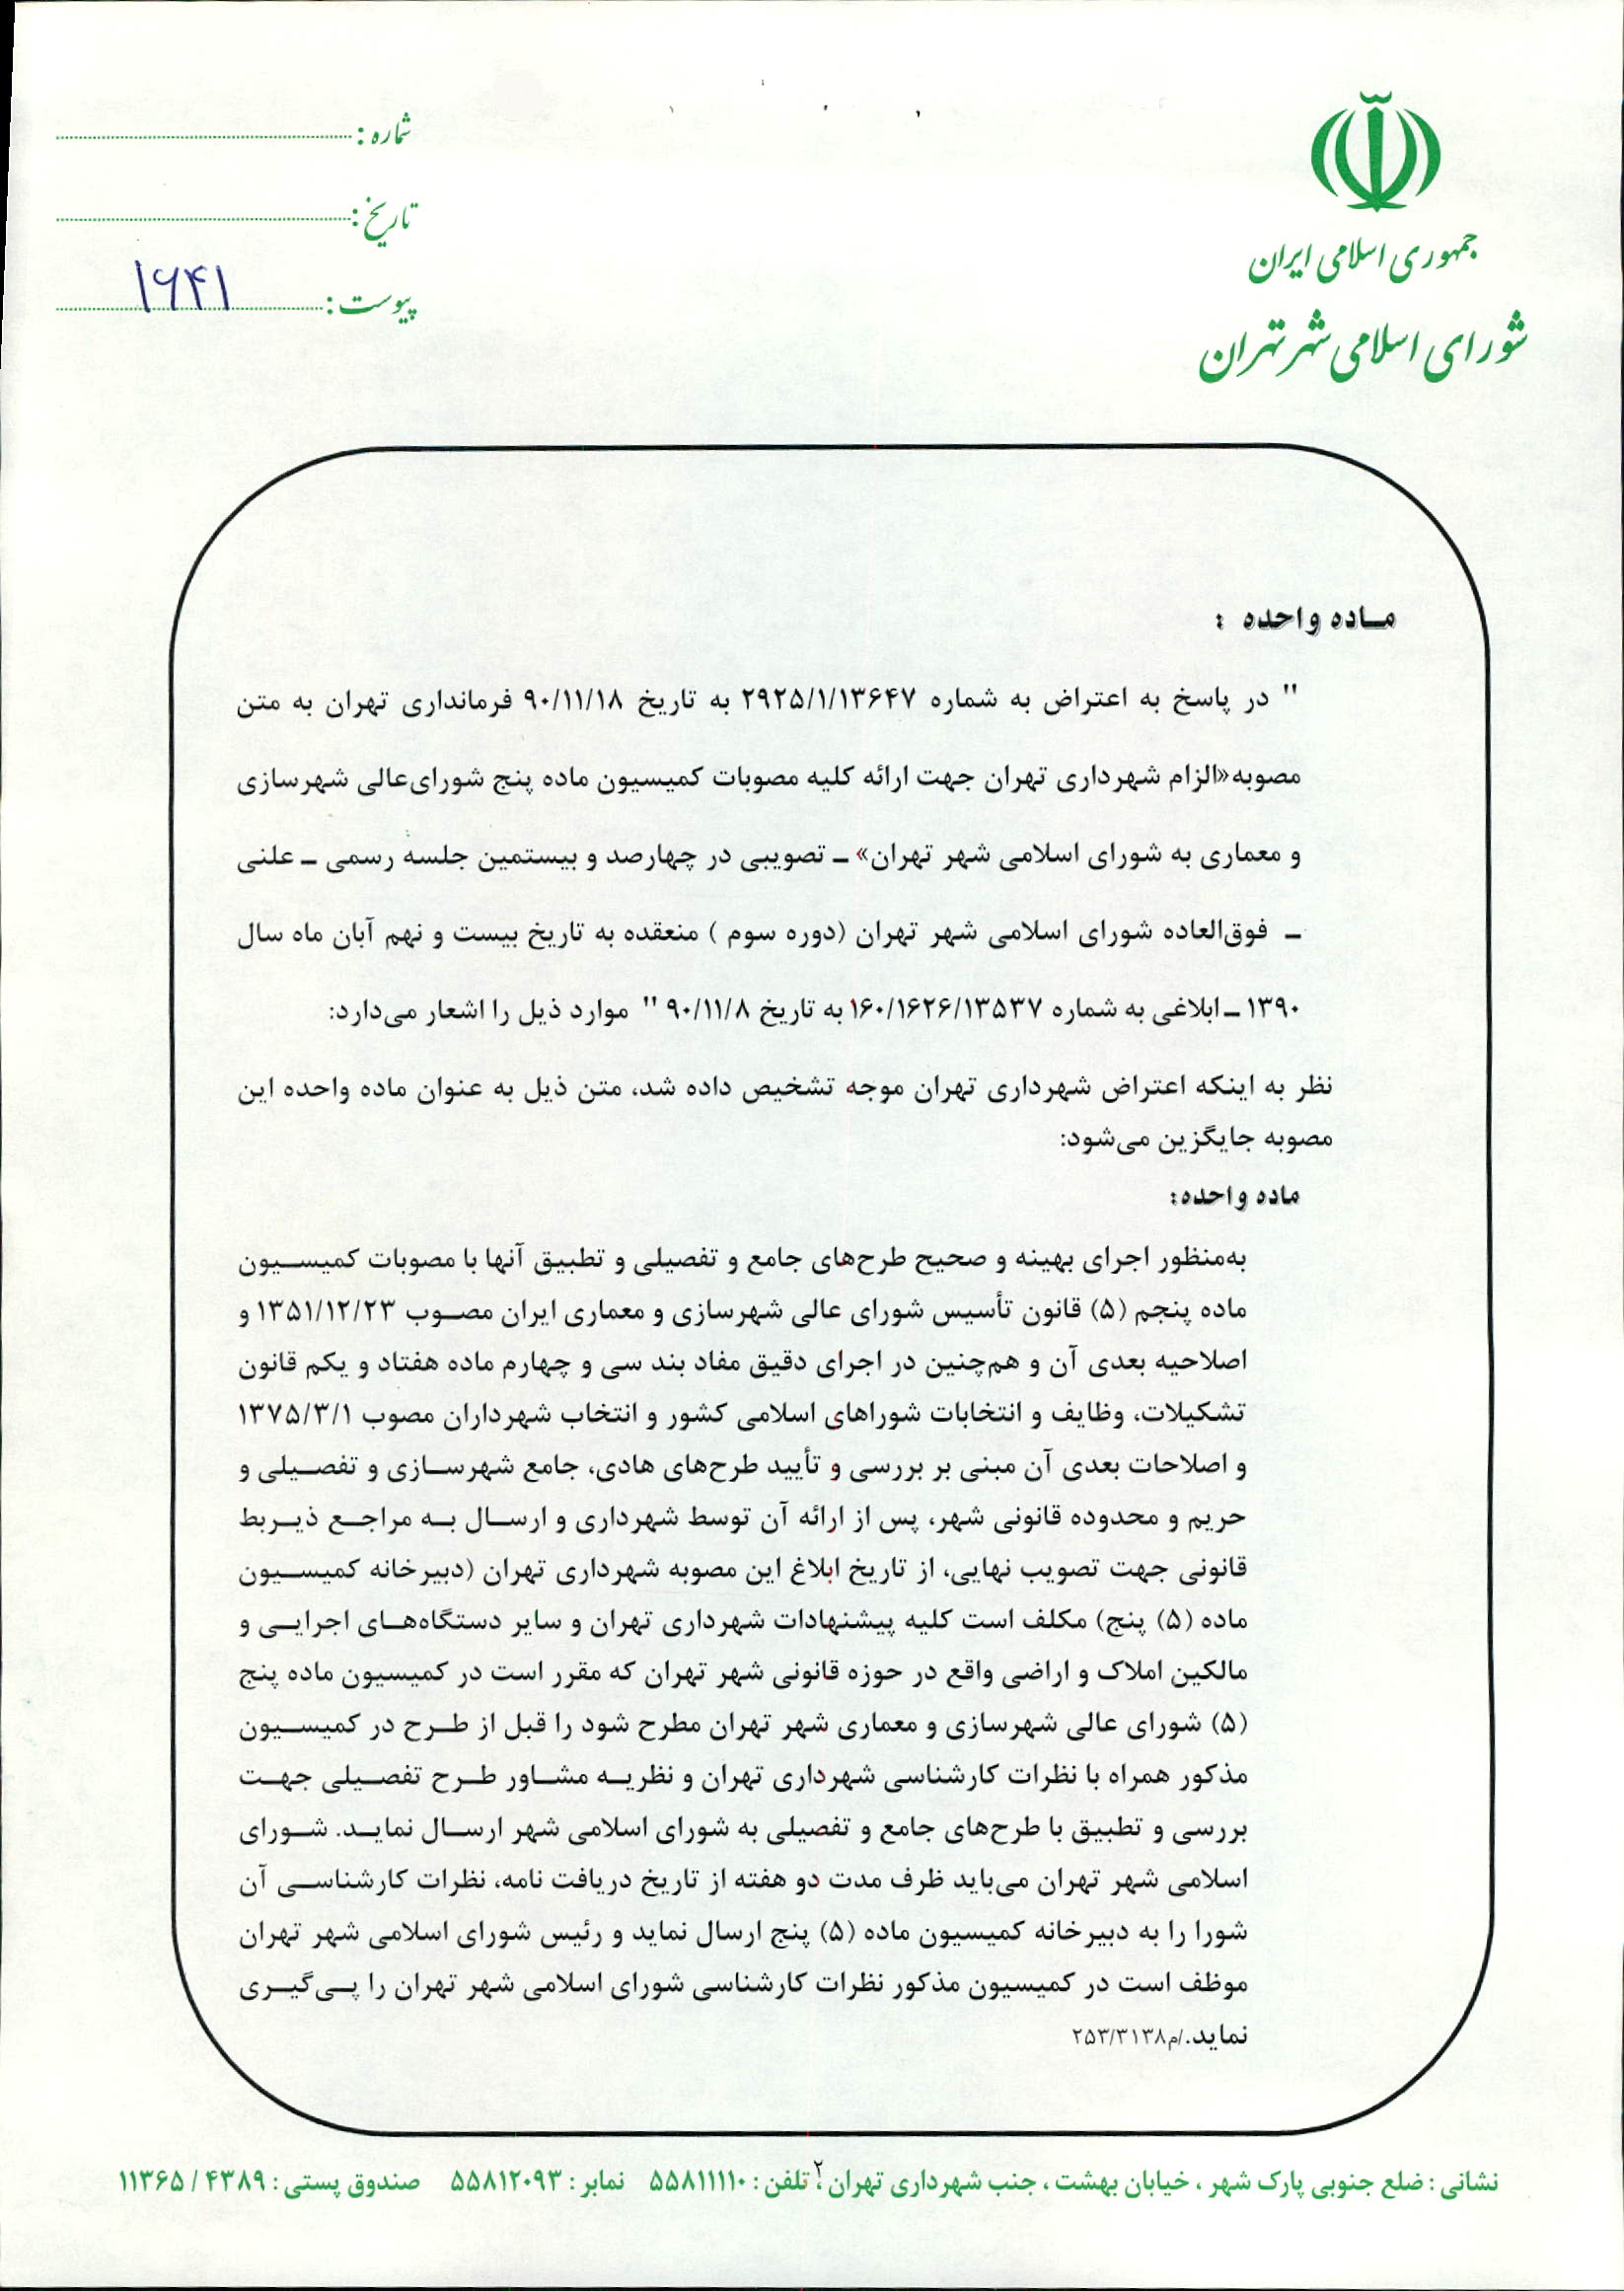 جمهوری اسلامی ایران
شورای اسلامی شهر تهران
شماره :
تاریخ :
پیوست : ۱۶۴۱
مـاده واحده :
" در پاسخ به اعتراض به شماره ۲۹۲۵/۱/۱۳۶۴۷ به تاریخ ۹۰/۱۱/۱۸ فرمانداری تهران به متن
مصوبه«الزام شهرداری تهران جهت ارائه کلیه مصوبات کمیسیون ماده پنج شورای‌عالی شهرسازی
و معماری به شورای اسلامی شهر تهران» ـ تصویبی در چهارصد و بیستمین جلسه رسمی ـ علنی
ـ فوق‌العاده شورای اسلامی شهر تهران (دوره سوم ) منعقده به تاریخ بیست و نهم آبان ماه سال
۱۳۹۰ ـ ابلاغی به شماره ۱۶۰/۱۶۲۶/۱۳۵۳۷ به تاریخ ۹۰/۱۱/۸ " موارد ذیل را اشعار می‌دارد:
نظر به اینکه اعتراض شهرداری تهران موجه تشخیص داده شد، متن ذیل به عنوان ماده واحده این
مصوبه جایگزین می‌شود:
ماده واحده:
به‌منظور اجرای بهینه و صحیح طرح‌های جامع و تفصیلی و تطبیق آنها با مصوبات کمیســیون
ماده پنجم (۵) قانون تأسیس شورای عالی شهرسازی و معماری ایران مصــوب ۱۳۵۱/۱۲/۲۳ و
اصلاحیه بعدی آن و هم‌چنین در اجرای دقیق مفاد بند سی و چهارم ماده هفتاد و یکم قانون
تشکیلات، وظایف و انتخابات شوراهای اسلامی کشور و انتخاب شهرداران مصوب ۱۳۷۵/۳/۱
و اصلاحات بعدی آن مبنی بر بررسی و تأیید طرح‌های هادی، جامع شهرســازی و تفصــیلی و
حریم و محدوده قانونی شهر، پس از ارائه آن توسط شهرداری و ارســال بــه مراجــع ذیــربط
قانونی جهت تصویب نهایی، از تاریخ ابلاغ این مصوبه شهرداری تهران (دبیرخانه کمیســیون
ماده (۵) پنج) مکلف است کلیه پیشنهادات شهرداری تهران و سایر دستگاه‌هــای اجرایــی و
مالکین املاک و اراضی واقع در حوزه قانونی شهر تهران که مقرر است در کمیسیون ماده پنج
(۵) شورای عالی شهرسازی و معماری شهر تهران مطرح شود را قبل از طــرح در کمیســیون
مذکور همراه با نظرات کارشناسی شهرداری تهران و نظریــه مشــاور طــرح تفصــیلی جهــت
بررسی و تطبیق با طرح‌های جامع و تفصیلی به شورای اسلامی شهر ارســال نمایــد. شــورای
اسلامی شهر تهران می‌باید ظرف مدت دو هفته از تاریخ دریافت نامه، نظرات کارشناســی آن
شورا را به دبیرخانه کمیسیون ماده (۵) پنج ارسال نماید و رئیس شورای اسلامی شهر تهران
موظف است در کمیسیون مذکور نظرات کارشناسی شورای اسلامی شهر تهران را پــی‌گیــری
نماید./م۲۵۳/۳۱۳۸
۲
نشانی : ضلع جنوبی پارک شهر ، خیابان بهشت ، جنب شهرداری تهران ؛ تلفن : ۵۵۸۱۱۱۱۰ نمابر : ۵۵۸۱۲۰۹۳ صندوق پستی : ۴۳۸۹ / ۱۱۳۶۵